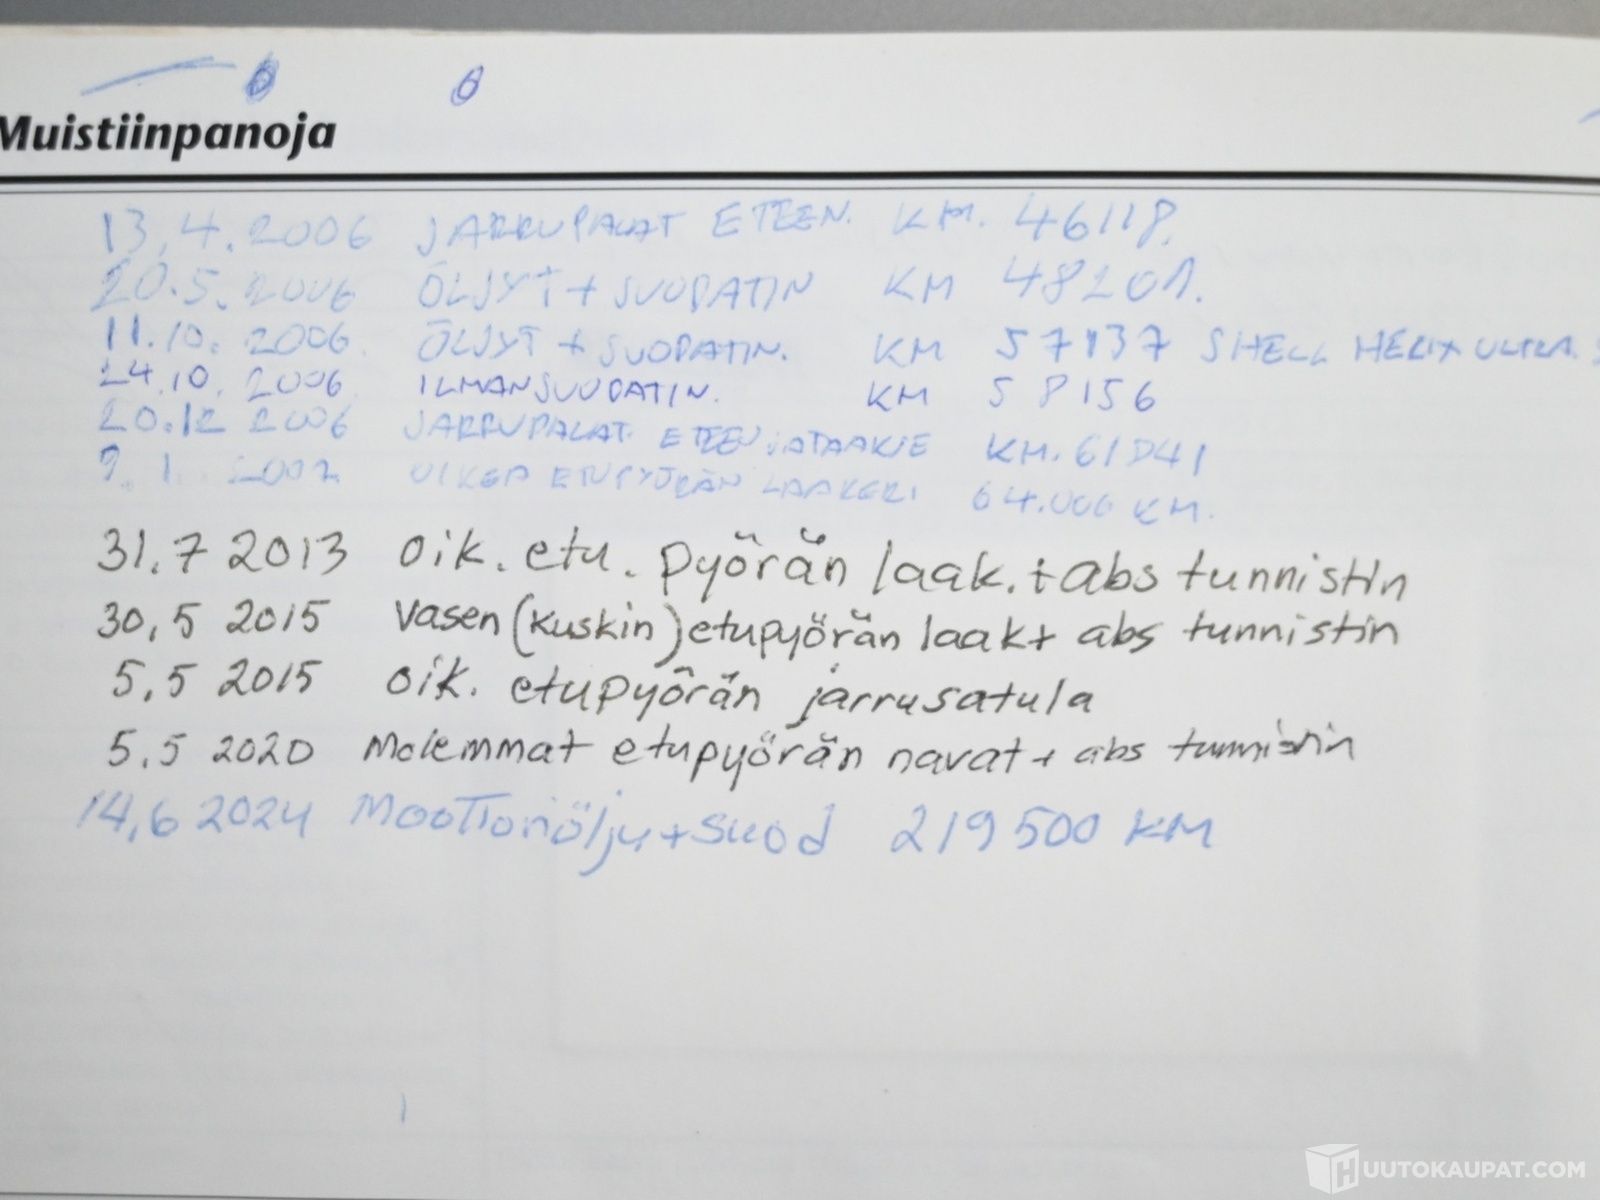 Muistiinpanoja
13.4.2006 JARRUPALAT ETEEN. KM. 46118.
20.5.2006 ÖLJYT + SUODATIN KM 48201.
11.10.2006 ÖLJYT + SUODATIN. KM 57137 SHELL HELIX ULTRA.
24.10.2006. ILMANSUODATIN. KM 58156
20.12 2006 JARRUPALAT ETEEN JATAAKSE KM. 61041
9.1.2007 OIKEA ETUPYÖRÄN LAAKERI 64.006 KM.
31.7 2013 oik. etu. pyörän laak.+abs tunnistin
30,5 2015 vasen (kuskin) etupyörän laak+ abs tunnistin
5,5 2015 oik. etupyörän jarrusatula
5.5 2020 Molemmat etupyörän navat + abs tunnistin
14,6 2024 Moottoriölju+suod 219 500 KM
HUUTOKAUPAT.COM